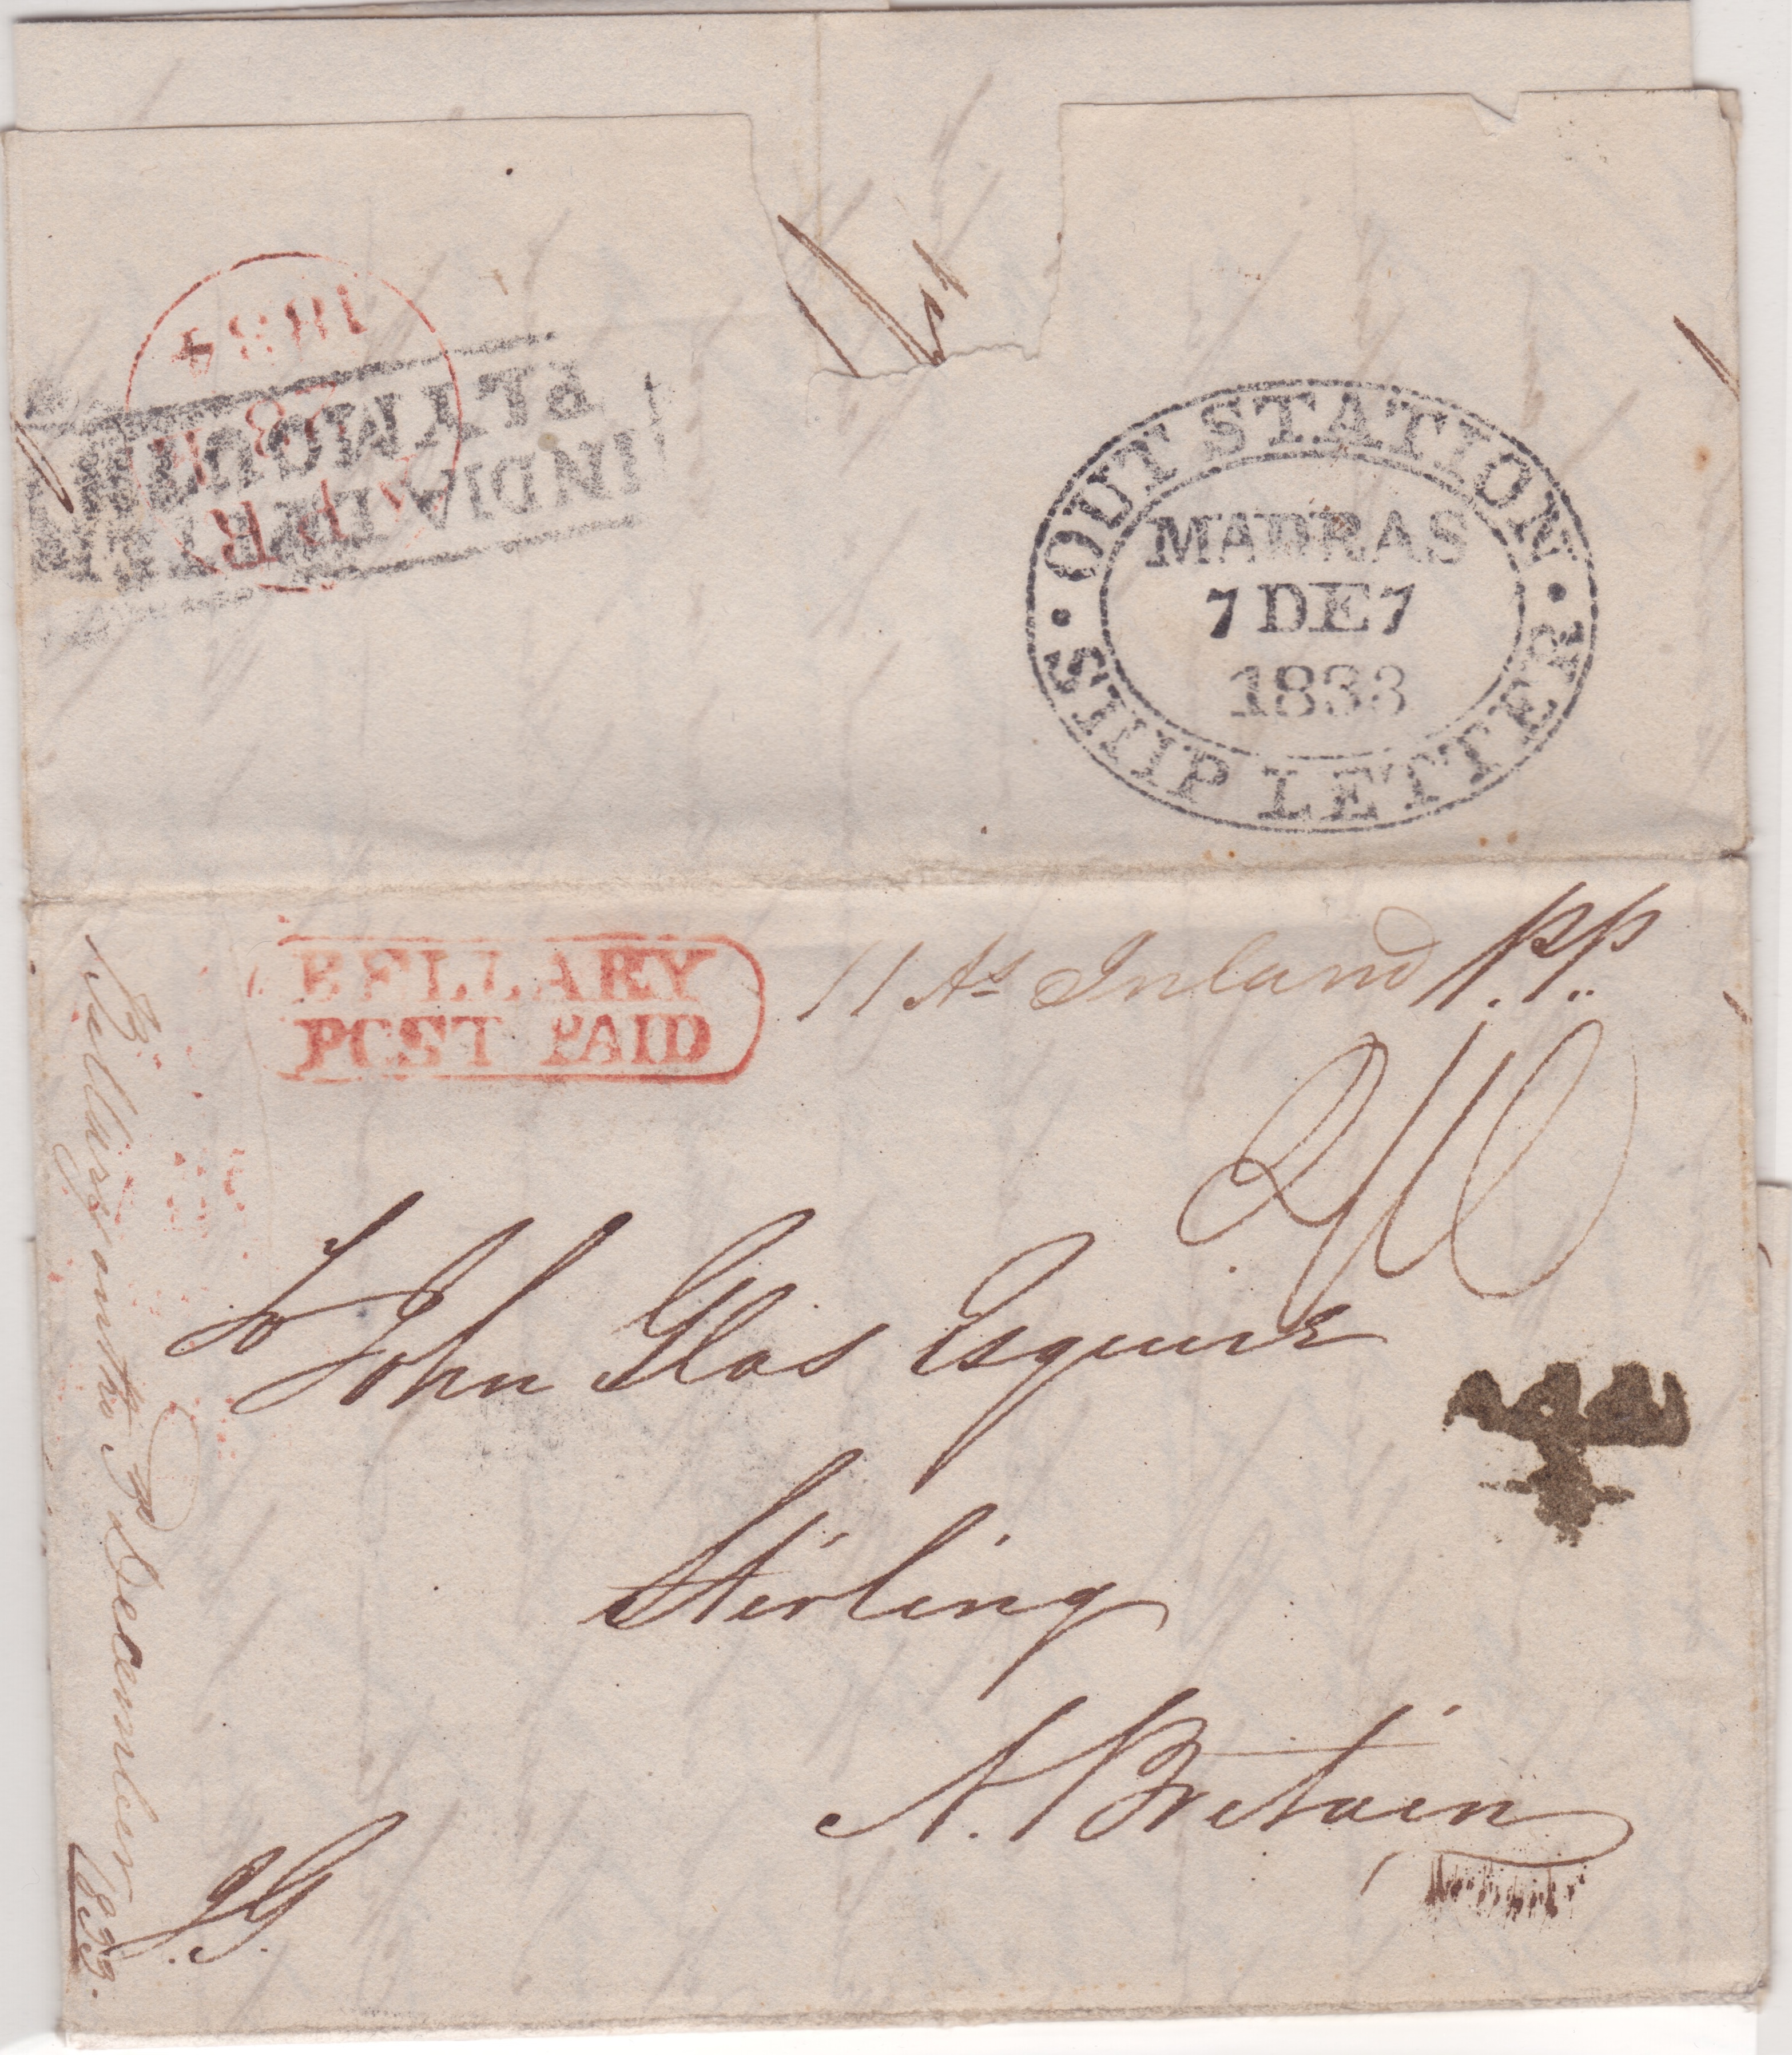 1834
28
APR
INDIA LETTER
PLYMOUTH
OUT STATION
MADRAS
7 DE 7
1833
SHIP LETTER
BELLARY
POST PAID
11 As Inland pp.
To
John Glas Esquire
Stirling
N. Britain
J.G.
Bellary December 1833.